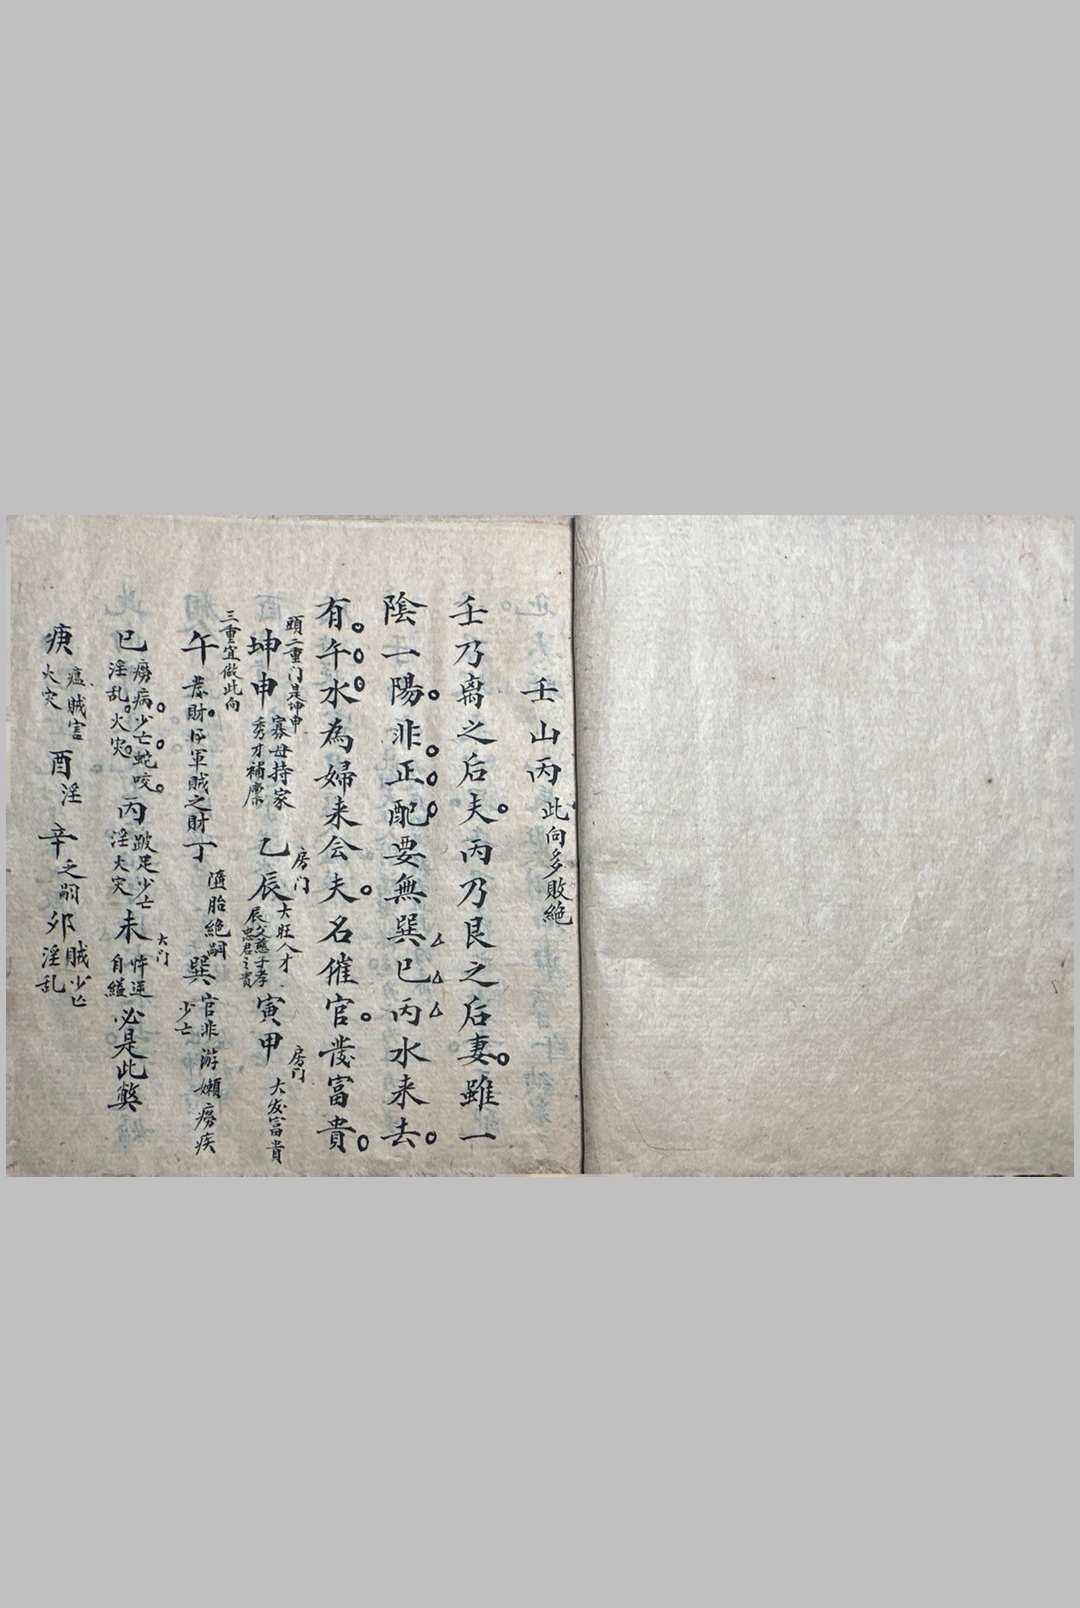 壬山丙 此向多敗絶
壬乃离之后夫。丙乃艮之后妻。雖一
陰一陽。非正配要無巽巳丙水来去。
有午水為婦来会夫。名催官。發富貴。
頭二重门是坤申
三重宜做此向
坤申 寡母持家 秀才補廪 乙辰 房门 大旺人才 辰父慈子孝 忠君之貴 寅甲 房门 大发富貴
午 發財。军賊之財 丁 墮胎絶嗣 巽 官非游嬾癆疾 少亡
巳 癆病。少亡。蛇咬。淫乱。火灾。 丙 跛足少亡 淫火灾 未 大门 忤逆 自縊 必是此獘
庚 瘟賊害 火灾 酉 淫 辛 乏嗣 卯 賊少亡 淫乱